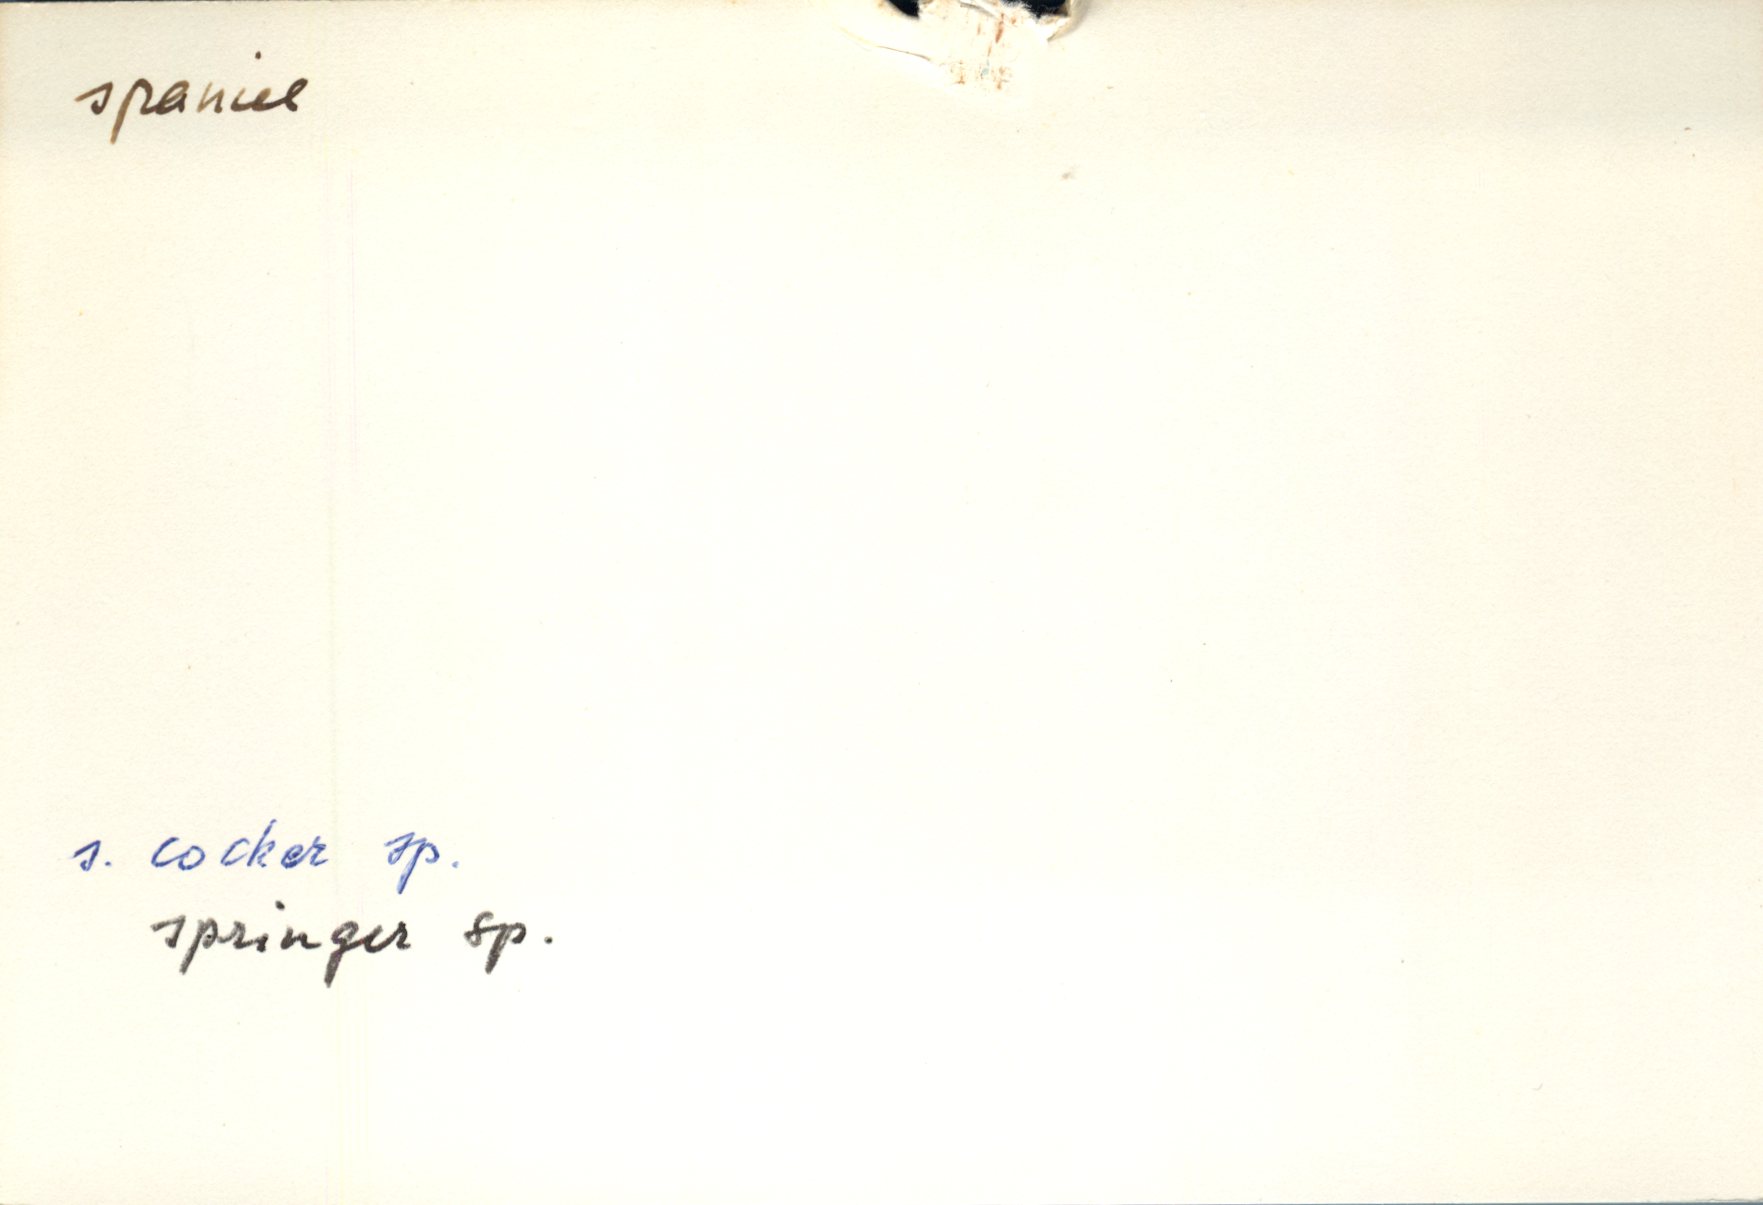 spaniel
s. cocker sp.
springer sp.